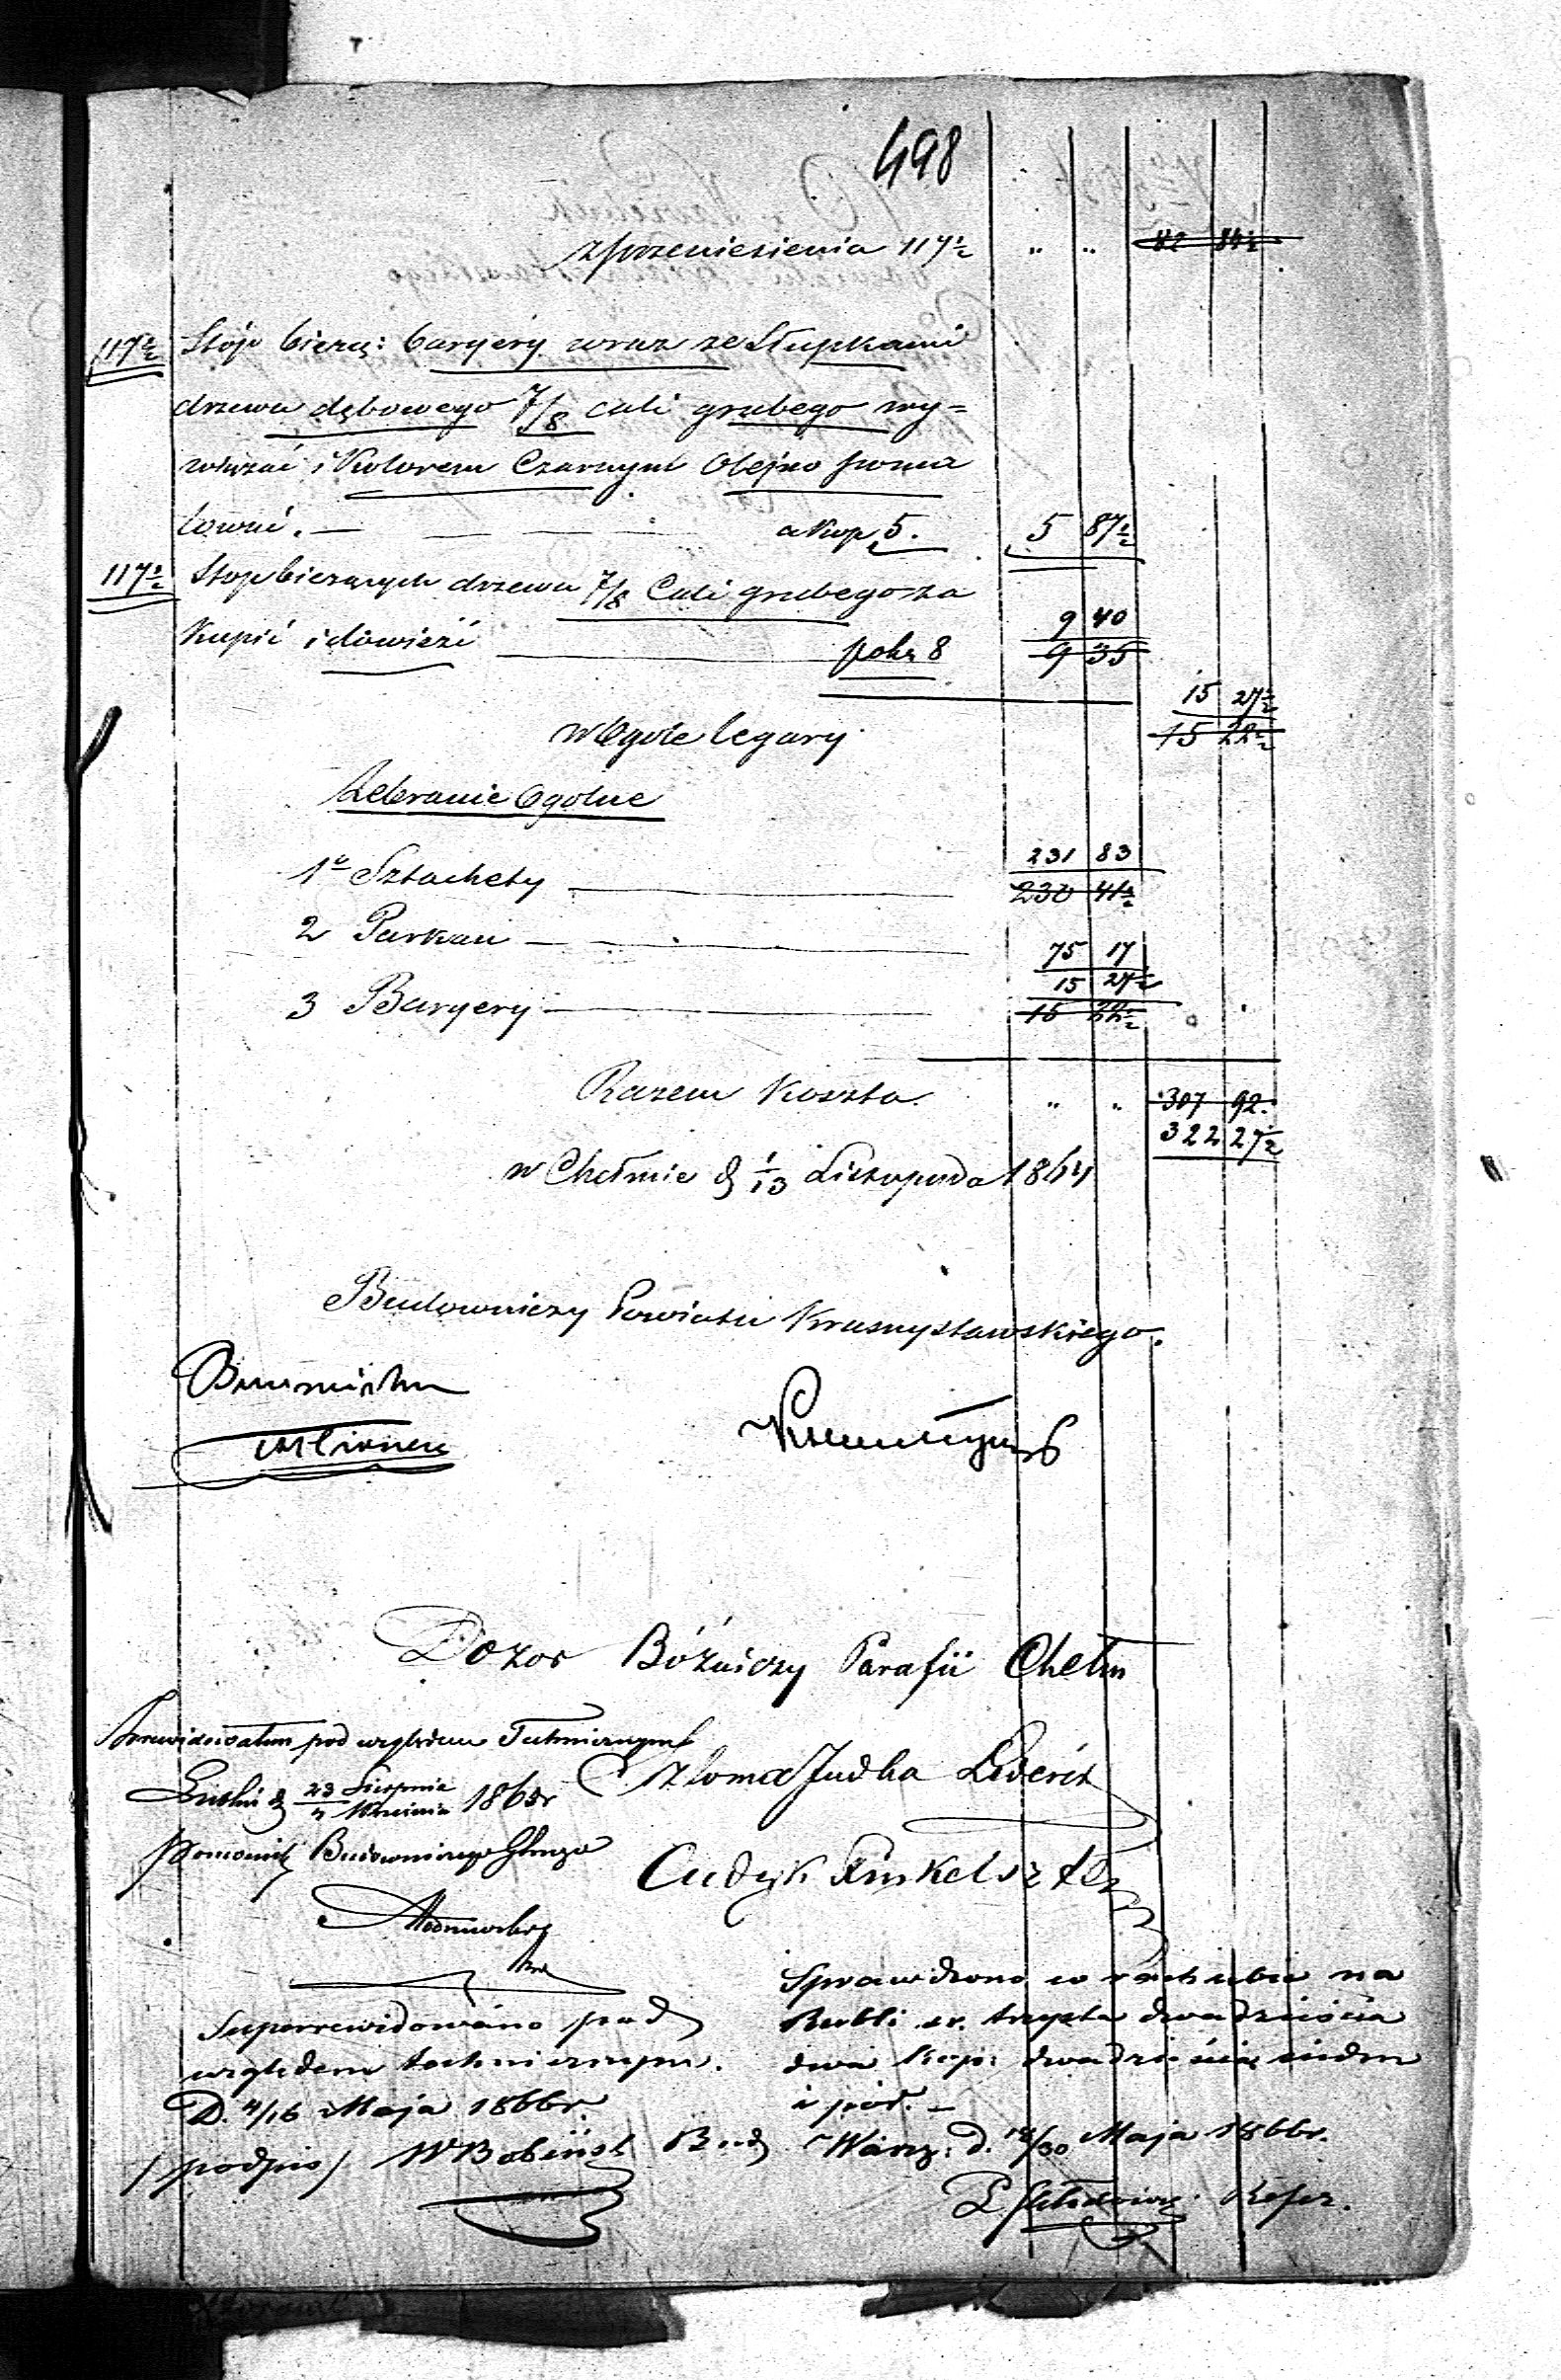 498
z przeniesienia 117½ " " 82 84½
117½ Stóp bieżą: baryery wraz ze Słupkami
drzewa dębowego 7/8 cali grubego wy=
wiązać i Kolorem Czarnym Olejno poma
lować. — a kop 5. 5 87½
117½ Stop bieżących drzewa 7/8 Cali grubego za
Kupić i dowieźć po kop 8 9 40
9 35
15 27½
w Ogóle legary 15 22½
Zebranie Ogolne
231 83
1º Sztachety 230 41½
2 Parkan 75 17
15 27½
3 Baryery 15 22½
Razem Koszta " " 307 92.
322 27½
w Chełmie d 1/13 Listopada 1864
Budowniczy Powiatu Krasnystawskiego.
Burmistrz
Dozor Bóźniczy Parafii Chełm
Zrewidowałem pod względem Technicznym
Szloma Judka Lederer
Lublin d 23 Sierpnia / 4 Września 1865r
Pomocnik Budowniczego Gbnego
Cudyk Finkelsztein
Superrewidowano pod
względem technicznym.
D. 4/16 Maja 1866r.
/podpis/ W Bobiński Bud
Sprawdzono w rachubie na
Rubli sr. trzysta dwadzieścia
dwa kop: dwadzieścia siedm
i pół. —
Warsz: d. 18/30 Maja 1866r.
Refer.